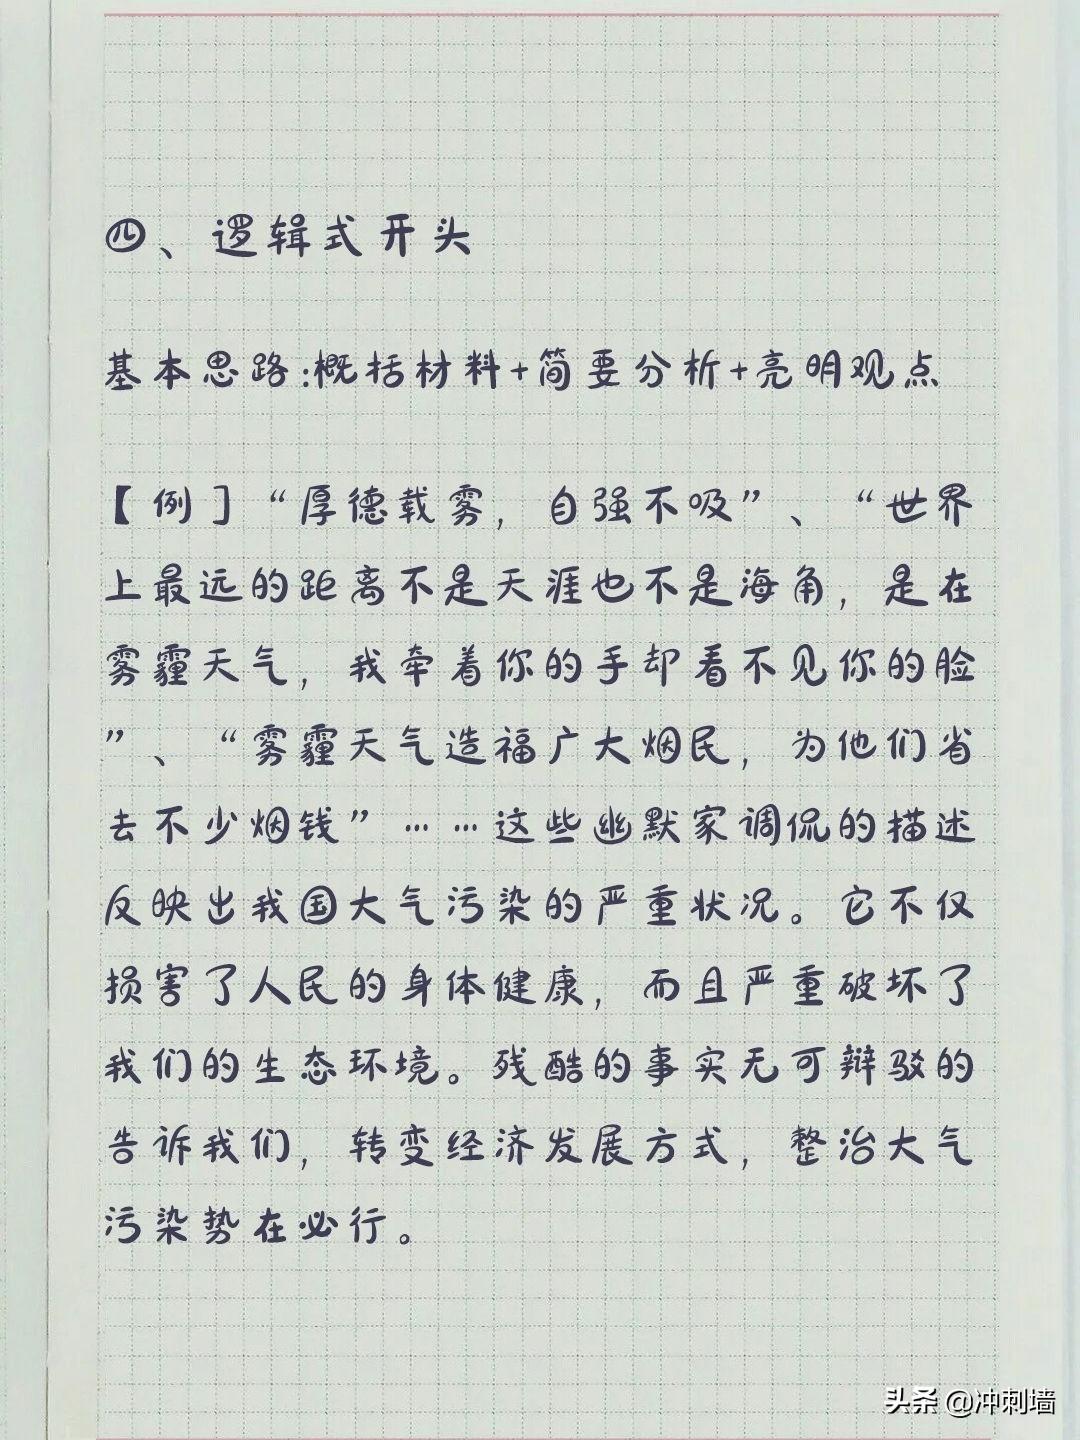 四、逻辑式开头
基本思路:概括材料+简要分析+亮明观点
【例】“厚德载雾，自强不吸”、“世界
上最远的距离不是天涯也不是海角，是在
雾霾天气，我牵着你的手却看不见你的脸
”、“雾霾天气造福广大烟民，为他们省
去不少烟钱”……这些幽默家调侃的描述
反映出我国大气污染的严重状况。它不仅
损害了人民的身体健康，而且严重破坏了
我们的生态环境。残酷的事实无可辩驳的
告诉我们，转变经济发展方式，整治大气
污染势在必行。
头条 @冲刺墙